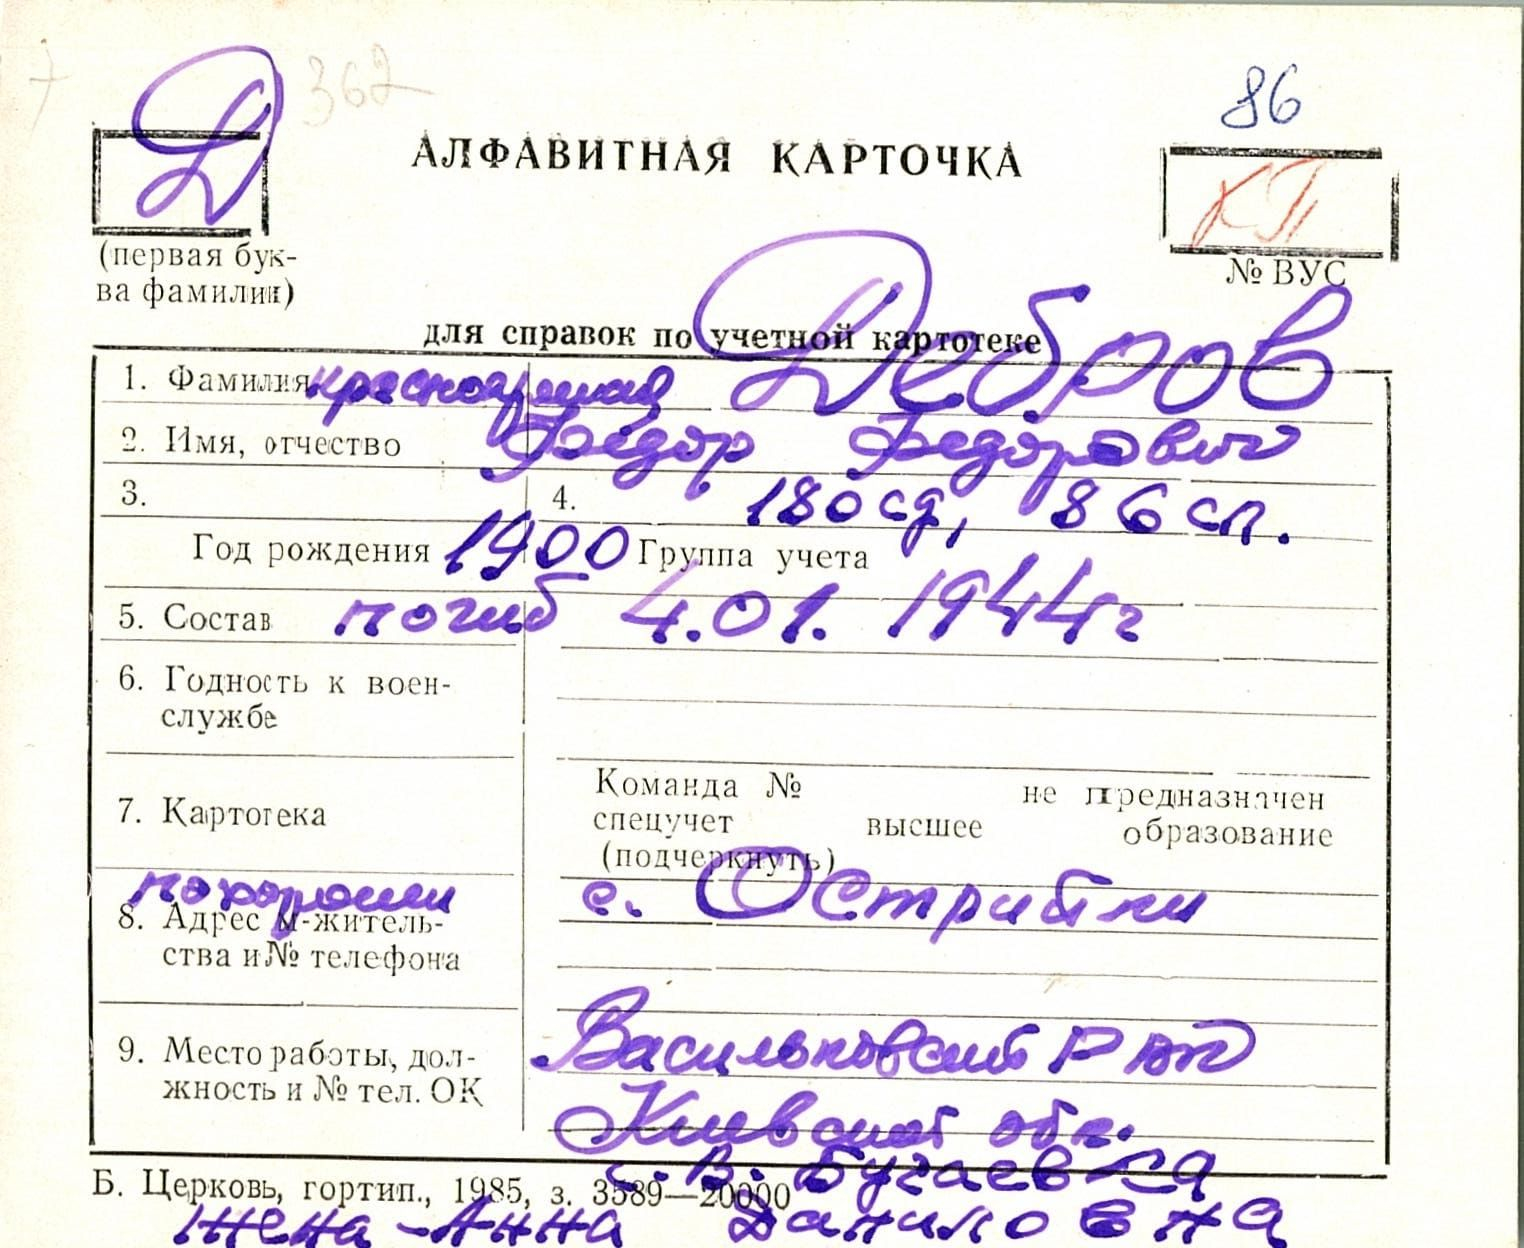 Д 362
86
АЛФАВИТНАЯ КАРТОЧКА
КП
(первая бук-
ва фамилии)
№ ВУС
для справок по учетной картотеке
1. Фамилия красноармеец Дебров
2. Имя, отчество Фёдор Федорович
3. 4. 180 сд, 86 сп.
Год рождения 1900 Группа учета
5. Состав погиб 4.01.1944 г
6. Годность к воен-
службе
7. Картотека
Команда № не предназначен
спецучет высшее образование
(подчеркнуть)
похоронен с. Острийки
8. Адрес м-житель-
ства и № телефона
9. Место работы, дол-
жность и № тел. ОК
Васильковский р-н
Киевской обл.
с. В. Бугаевка
Б. Церковь, гортип., 1985, з. 3589—20000
жена - Анна Даниловна